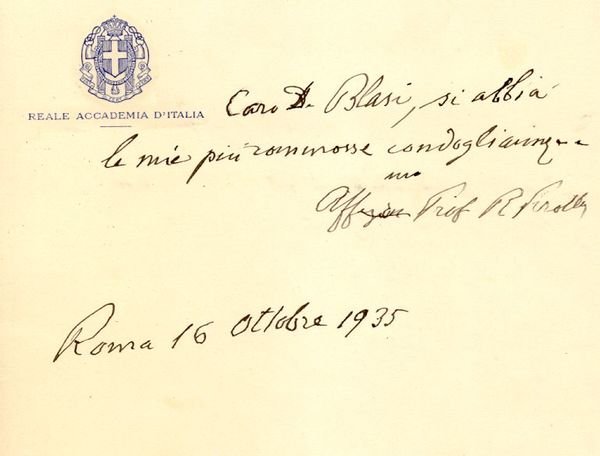 REALE ACCADEMIA D'ITALIA
Caro D. Blasi, si abbia
le mie più commosse condoglianze
mo
Aff Prof R.
Roma 16 Ottobre 1935